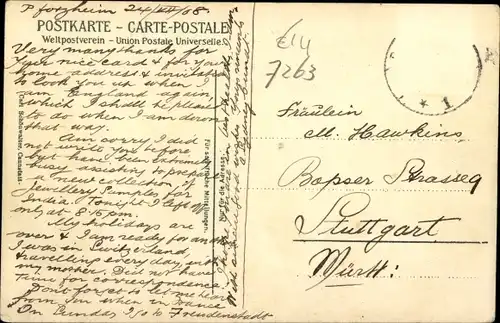 Pforzheim 24/VII/08
POSTKARTE – CARTE-POSTALE
Weltpostverein – Union Postale Universelle
Very many thanks for
your nice card & for your
home address & invitation
to look you up when I
am England again
which I shall be pleased
to do when I am down
that way.
Am sorry I did
not write you before
but have been extremely
busy assisting to prepare
a new collection of
Jewellery Samples for
India. Tonight I left off
only at 8.15 p.m.
My holidays are
over & I am ready for
I was in Switzerland,
travelling every day, with
my mother. Did not have
time for correspondence.
Don't forget to let me hear
from you when in France.
On Sunday I go to Freudenstadt
with
Carl Schöuwalter, Cannstatt
Für schriftliche Mitteilungen.
Nur für die Adresse.
7263
1
Fräulein
M. Hawkins
Bopser Strasse 9
Stuttgart
Württ: